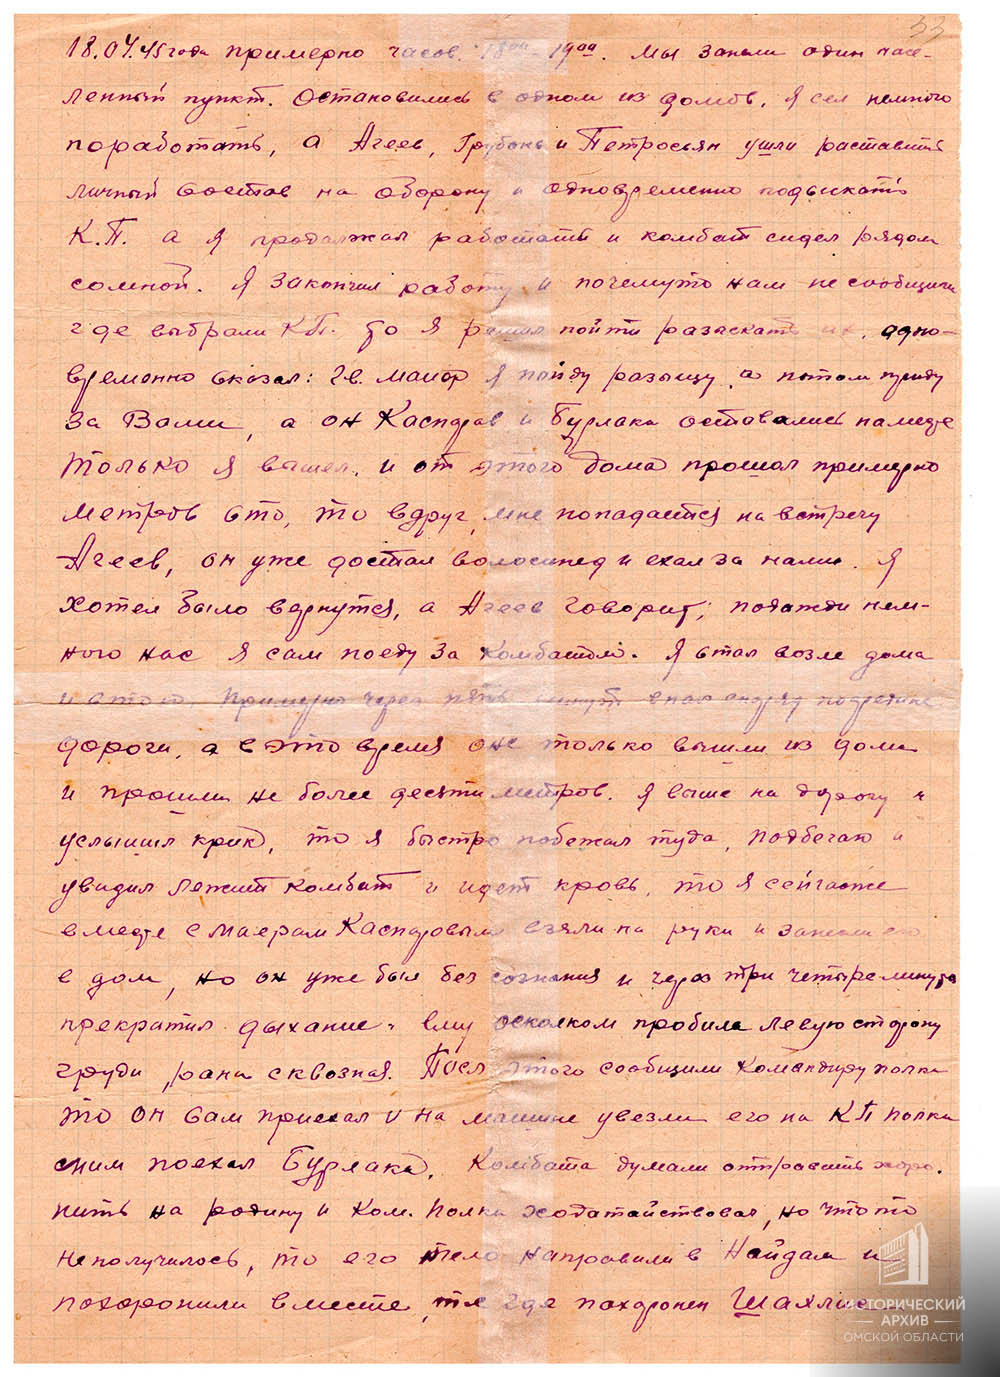 33
18.04.45 года примерно часов 18 00 - 19 00. Мы заняли один насе-
ленный пункт. Остановились в одном из домов, я сел немного
поработать, а Агеев, Грубонь и Петросьян ушли раставить
личный состав на оборону и одновременно подыскать
К.П. а я продалжал работать и комбат сидел рядом
сомной. Я закончил работу и почемуто нам не сообщили
где выбрали К.П. то я решил пойти разыскать их, одно-
временно сказал: гв. маиор я пойду разыщу, а потом приду
за Вами, а он Каспаров и Бурлака оставались наместе
только я вышел и от этого дома прошол примерно
метров сто, то вдруг мне попадается на встречу
Агеев, он уже достал волосипед и ехал за нами. Я
хотел было вернутся, а Агеев говорит; подажди нем-
ного нас я сам поеду за комбатом. Я стал возле дома
и стою. Примерно через пять минут упал снаряд посредине
дороги, а в это время оне только вышли из дома
и прошли не более десяти метров. Я выше на дорогу и
услышил крик, то я быстро побежал туда, подбегаю и
увидил лежит комбат и идет кровь, то я сейчасже
вместе с маерам Каспаровым взяли на руки и занесли его
в дом, но он уже был без сознания и через три четыре минуты
прекратил дыхание. ему осколком пробила левую сторону
груди, рана сквозная. После этого сообщили командиру полка
то он сам приехал и на машине увезли его на КП полка
сним поехал Бурлака. Комбата думали отправить хоро-
нить на родину и ком. полка ходатайствовал, но что то
неполучилось, то его тело направили в Найдам и
похоронили вместе, где похоронен Шахлис
ИСТОРИЧЕСКИЙ
АРХИВ
ОМСКОЙ ОБЛАСТИ